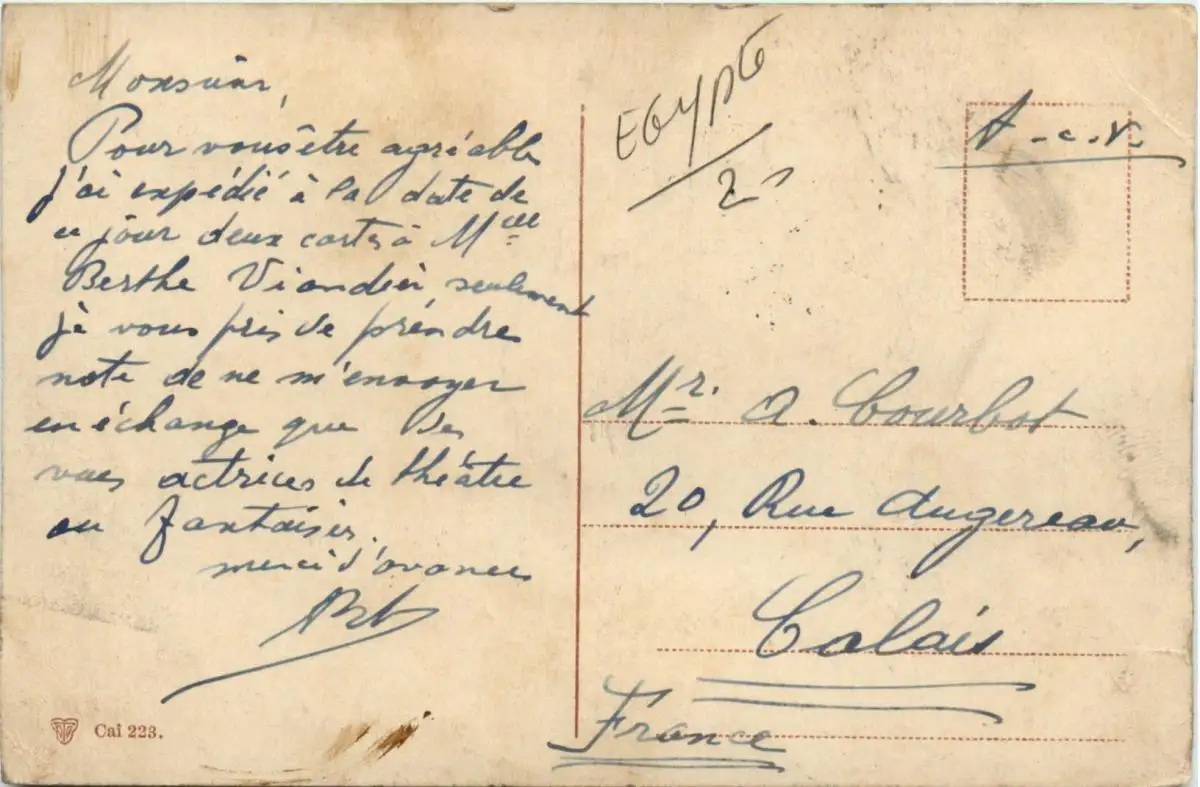 Monsieur,
Pour vous être agréable
j'ai expédié à la date de
ce jour deux cartes à Mlle
Berthe Viandier, seulement
je vous pris de prendre
note de ne m'envoyer
en échange que des
vues actrices de théâtre
ou fantaisies.
merci d'avance
Cai 223.
EGYPTE
2
t.c.v.
Mr. A. Courbot
20, Rue Augereau,
Calais
France